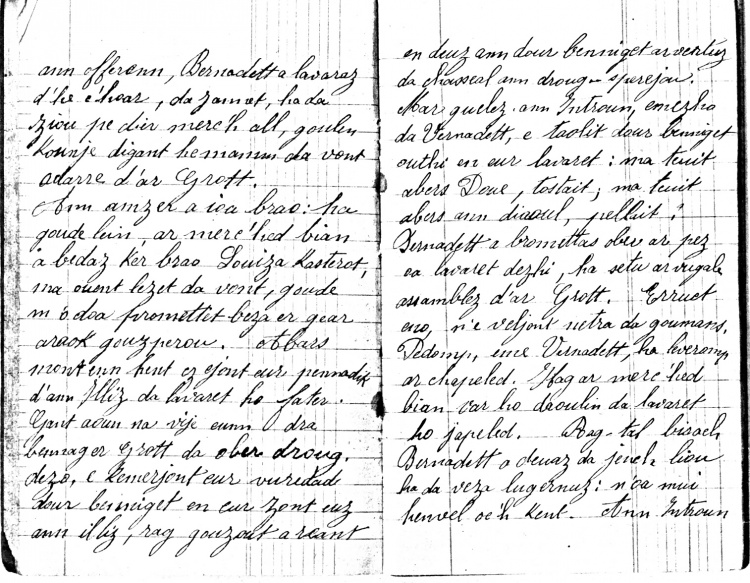 ann offerenn, Bernadett a lavaraz
d'he c'hoar, da Jannet, ha da
ziou pe dir merc'h all, goulen
kounje digant he mamm da vont
adarre d'ar Grott.
Ann amzer a ioa brao: ha
goude lein, ar merc'hed bian
a bedaz ker brao Louiza Kasterot,
ma ouent lezet da vont, goude
m'o doa promettet beza er gear
araok gouzperou. Abars
mont enn hent ez ejont eur pennadik
d'ann Iliz da lavaret ho fater.
Gant aoun na vije eunn dra
bennag er Grott da ober droug
dezo, e kemerjont eur vuredad
dour benniget en eur zont euz
ann iliz, rag gouzout a reant
en deuz ann dour benniget ar vertuz
da chasseal ann droug-sperejou.
Mar guelez ann Introun, emezho
da Vernadett, e taolit dour benniget
outhi en eur lavaret: ma teuit
abers Doue, tostait; ma teuit
abers ann diaoul, pelluit!
Bernadett a bromettas ober ar pez
oa lavaret dezhi, ha setu ar vugale
assamblez d'ar Grott. Erruet
eno, n'e veljont netra da goumans.
Pedomp, eme Vernadett, ha leveromp
ar chapeled. Hag ar merc'hed
bian var ho daoulin da lavaret
ho japeled. Rag-tal bizach
Bernadett a deuaz da jench liou
ha da veza lugernuz: n'oa mui
henvel oc'h kent. Ann Introun